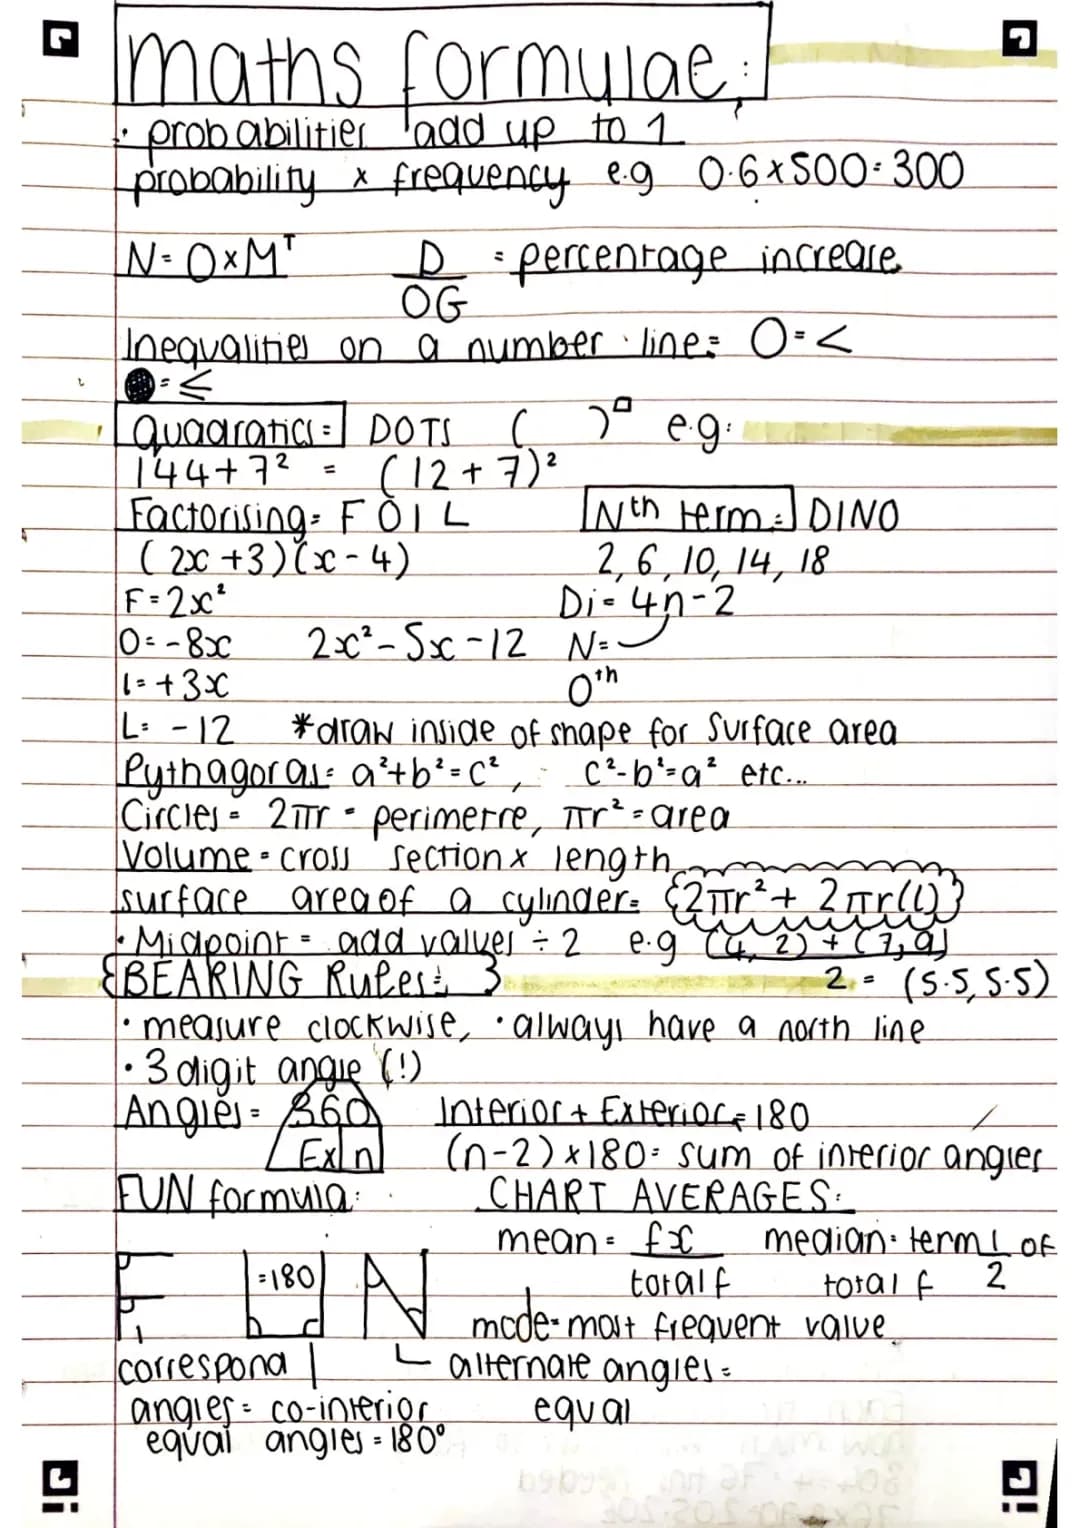 maths formulae:
· probabilities add up to 1
probability x frequency e.g 0.6x500=300
N=O×Mᵀ D/OG = percentage increase
Inequalities on a number line: O=<
●=≤
Quadratics= DOTS ( )□ e.g:
144+7² = (12+7)²
Factorising= FOIL Nth term= DINO
(2x+3)(x-4) 2,6,10,14,18
F=2x² Di=4n-2
O=-8x 2x²-5x-12 N=
I=+3x 0th
L=-12 *draw inside of shape for surface area
Pythagoras= a²+b²=c², c²-b²=a² etc...
Circles= 2πr = perimetre, πr²=area
Volume=cross section x length
surface area of a cylinder= {2πr²+2πr(l)}
·Midpoint= add values ÷2 e.g (4,2)+(7,9)
2 = (5.5,5.5)
{BEARING Rules: }
·measure clockwise, ·always have a north line
·3 digit angle (!)
Angles= 360 Interior+Exterior=180
Ex|n (n-2)×180= sum of interior angles
FUN formula: CHART AVERAGES:
mean= fx median= term 1 of
F =180 N total f total f 2
mode=most frequent value
correspond alternate angles=
angles= co-interior equal
equal angles=180°